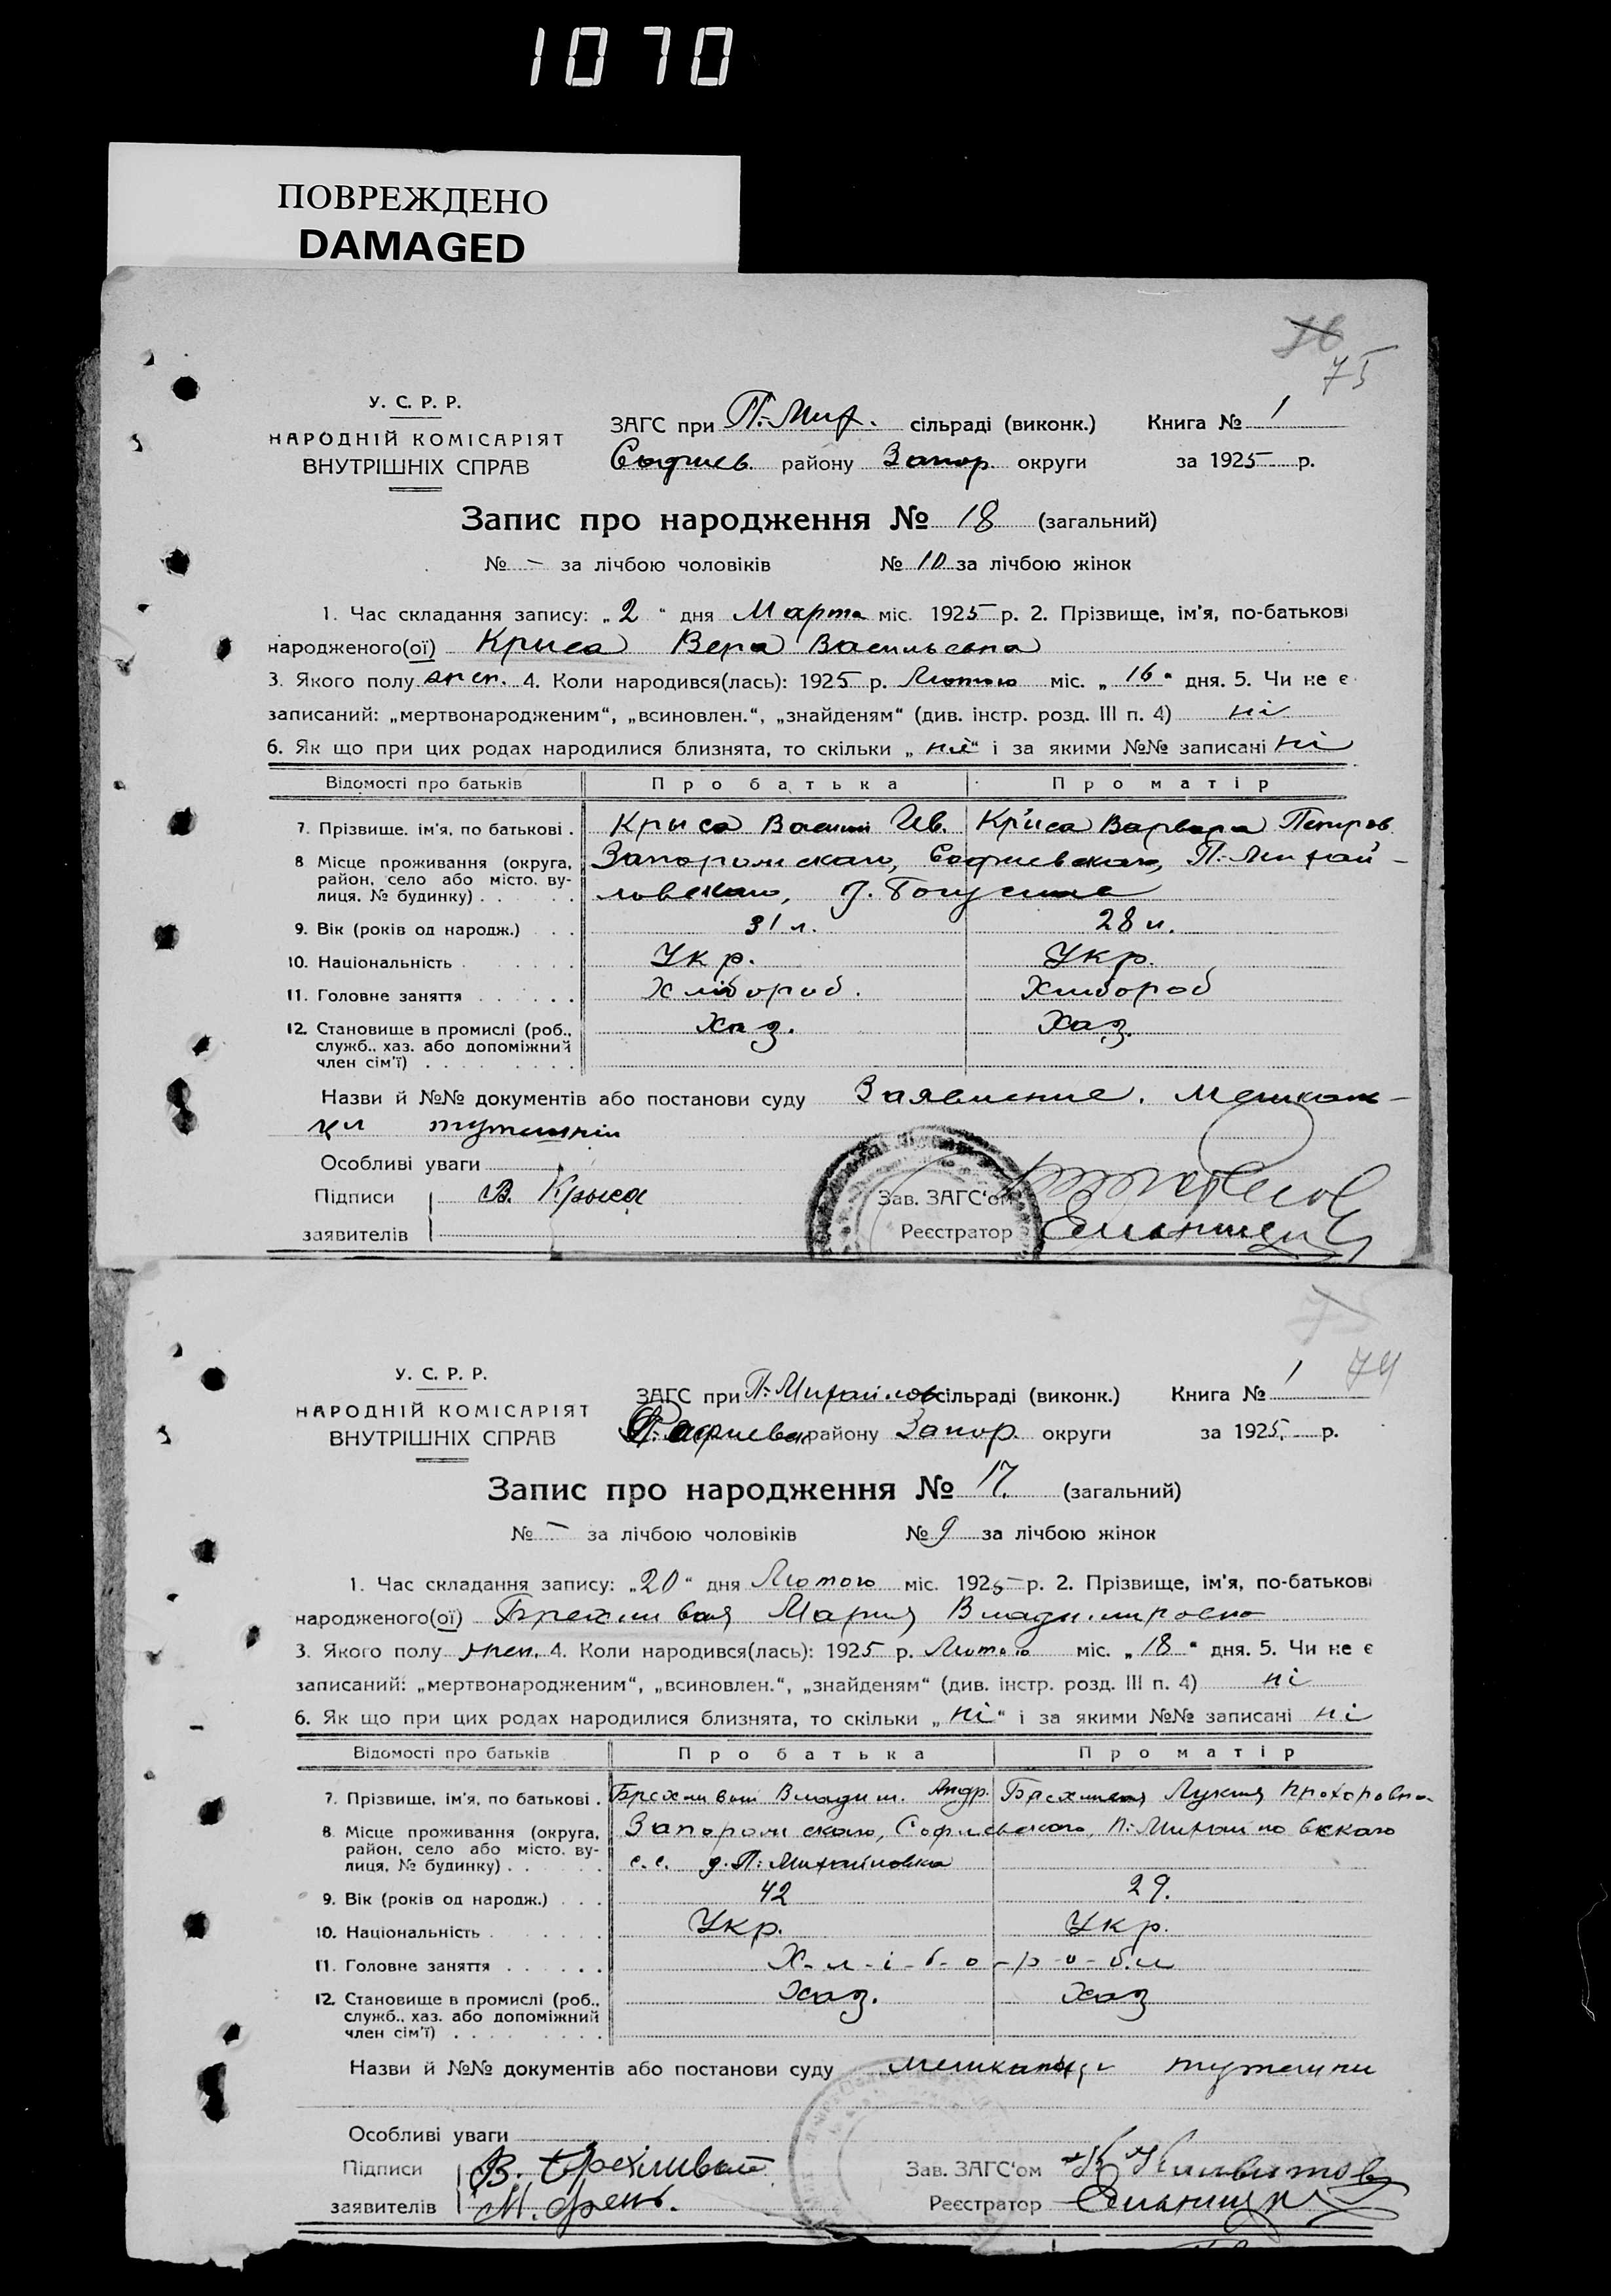 1070
ПОВРЕЖДЕНО
DAMAGED
76
75
У. С. Р. Р.
НАРОДНІЙ КОМІСАРІЯТ
ВНУТРІШНІХ СПРАВ
ЗАГС при П.-Мих. сільраді (виконк.) Книга № 1
Софиев. району Запор. округи за 1925 р.
Запис про народження № 18 (загальний)
№ - за лічбою чоловіків № 10 за лічбою жінок
1. Час складання запису: „2“ дня Марта міс. 1925 р. 2. Прізвище, ім'я, по-батькові
народженого(ої) Криса Вера Васильевна
3. Якого полу жен. 4. Коли народився(лась): 1925 р. Лютого міс. „16“ дня. 5. Чи не є
записаний: „мертвонародженим“, „всиновлен.“, „знайденям“ (див. інстр. розд. III п. 4) ні
6. Як що при цих родах народилися близнята, то скільки „ні“ і за якими №№ записані ні
Відомості про батьків Про батька Про матір
7. Прізвище, ім'я, по батькові . Крыса Васили Ив. Криса Варвара Петров
8 Місце проживання (округа, район, село або місто, вулиця, № будинку) . . . Запорожскаго, Софиевскаго, П.-Михай-
ловскаго,
9. Вік (років од народж.) . . 31 л. 28 л.
10. Національність . . . . . . Укр. Укр.
11. Головне заняття . . . . . . Хлібороб. Хлибороб
12. Становище в промислі (роб., служб., хаз. або допоміжний член сім'ї) . . . . . . . . Хаз. Хаз.
Назви й №№ документів або постанови суду Заявление. Мешкан-
ци тутешні
Особливі уваги
Підписи В. Крыса Зав. ЗАГС'ом
заявителів Реєстратор
75
74
У. С. Р. Р.
НАРОДНІЙ КОМІСАРІЯТ
ВНУТРІШНІХ СПРАВ
ЗАГС при П.-Михайлов сільраді (виконк.) Книга № 1
Софиевск району Запор. округи за 1925. р.
Запис про народження № 17. (загальний)
№ - за лічбою чоловіків № 9 за лічбою жінок
1. Час складання запису: „20“ дня Лютого міс. 1925 р. 2. Прізвище, ім'я, по-батькові
народженого(ої) Брехливая Мария Владимировна
3. Якого полу жен. 4. Коли народився(лась): 1925 р. Лютого міс. „18“ дня. 5. Чи не є
записаний: „мертвонародженим“, „всиновлен.“, „знайденям“ (див. інстр. розд. III п. 4) ні
6. Як що при цих родах народилися близнята, то скільки „ні“ і за якими №№ записані ні
Відомості про батьків Про батька Про матір
7. Прізвище, ім'я, по батькові . Брехливый Владим. Андр. Брехливая Лукия Прохоровна
8. Місце проживання (округа, район, село або місто, вулиця, № будинку) . . . Запорожскаго, Софиевского, П.-Михайловскаго
с.с. д. П.-Михайловка
9. Вік (років од народж.) . . . 42 29.
10. Національність . . . . . . Укр. Укр.
11. Головне заняття . . . . . . Х-л-і-б-о-р-о-б.и
12. Становище в промислі (роб., служб., хаз. або допоміжний член сім'ї) . . . . . . . . Хаз. Хаз
Назви й №№ документів або постанови суду мешканци тутешни
Особливі уваги
Підписи В. Брехливый Зав. ЗАГС'ом
заявителів Реєстратор